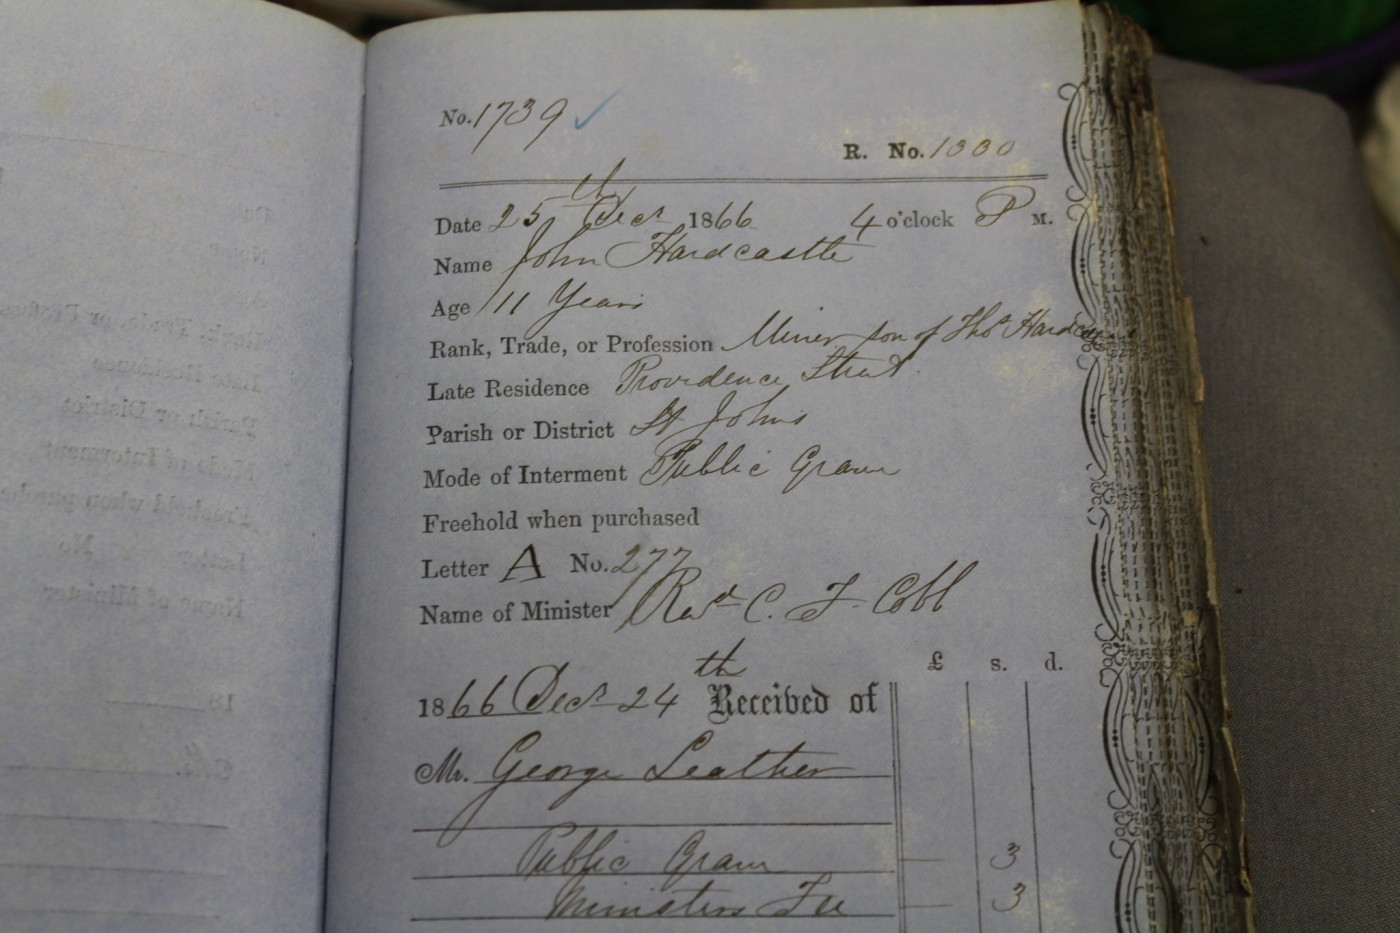 No. 1739 ✓
R. No. 1330
Date 25th Decr 1866 4 o'clock P M.
Name John Hardcastle
Age 11 Years
Rank, Trade, or Profession Miner son of Thos
Late Residence Providence Street
Parish or District St Johns
Mode of Interment Public Grave
Freehold when purchased
Letter A No. 277
Name of Minister Revd C. F. Cobb
£ s. d.
1866 Decr 24th Received of
Mr. George Leather
Public Grave — 3
Ministers Fee — 3